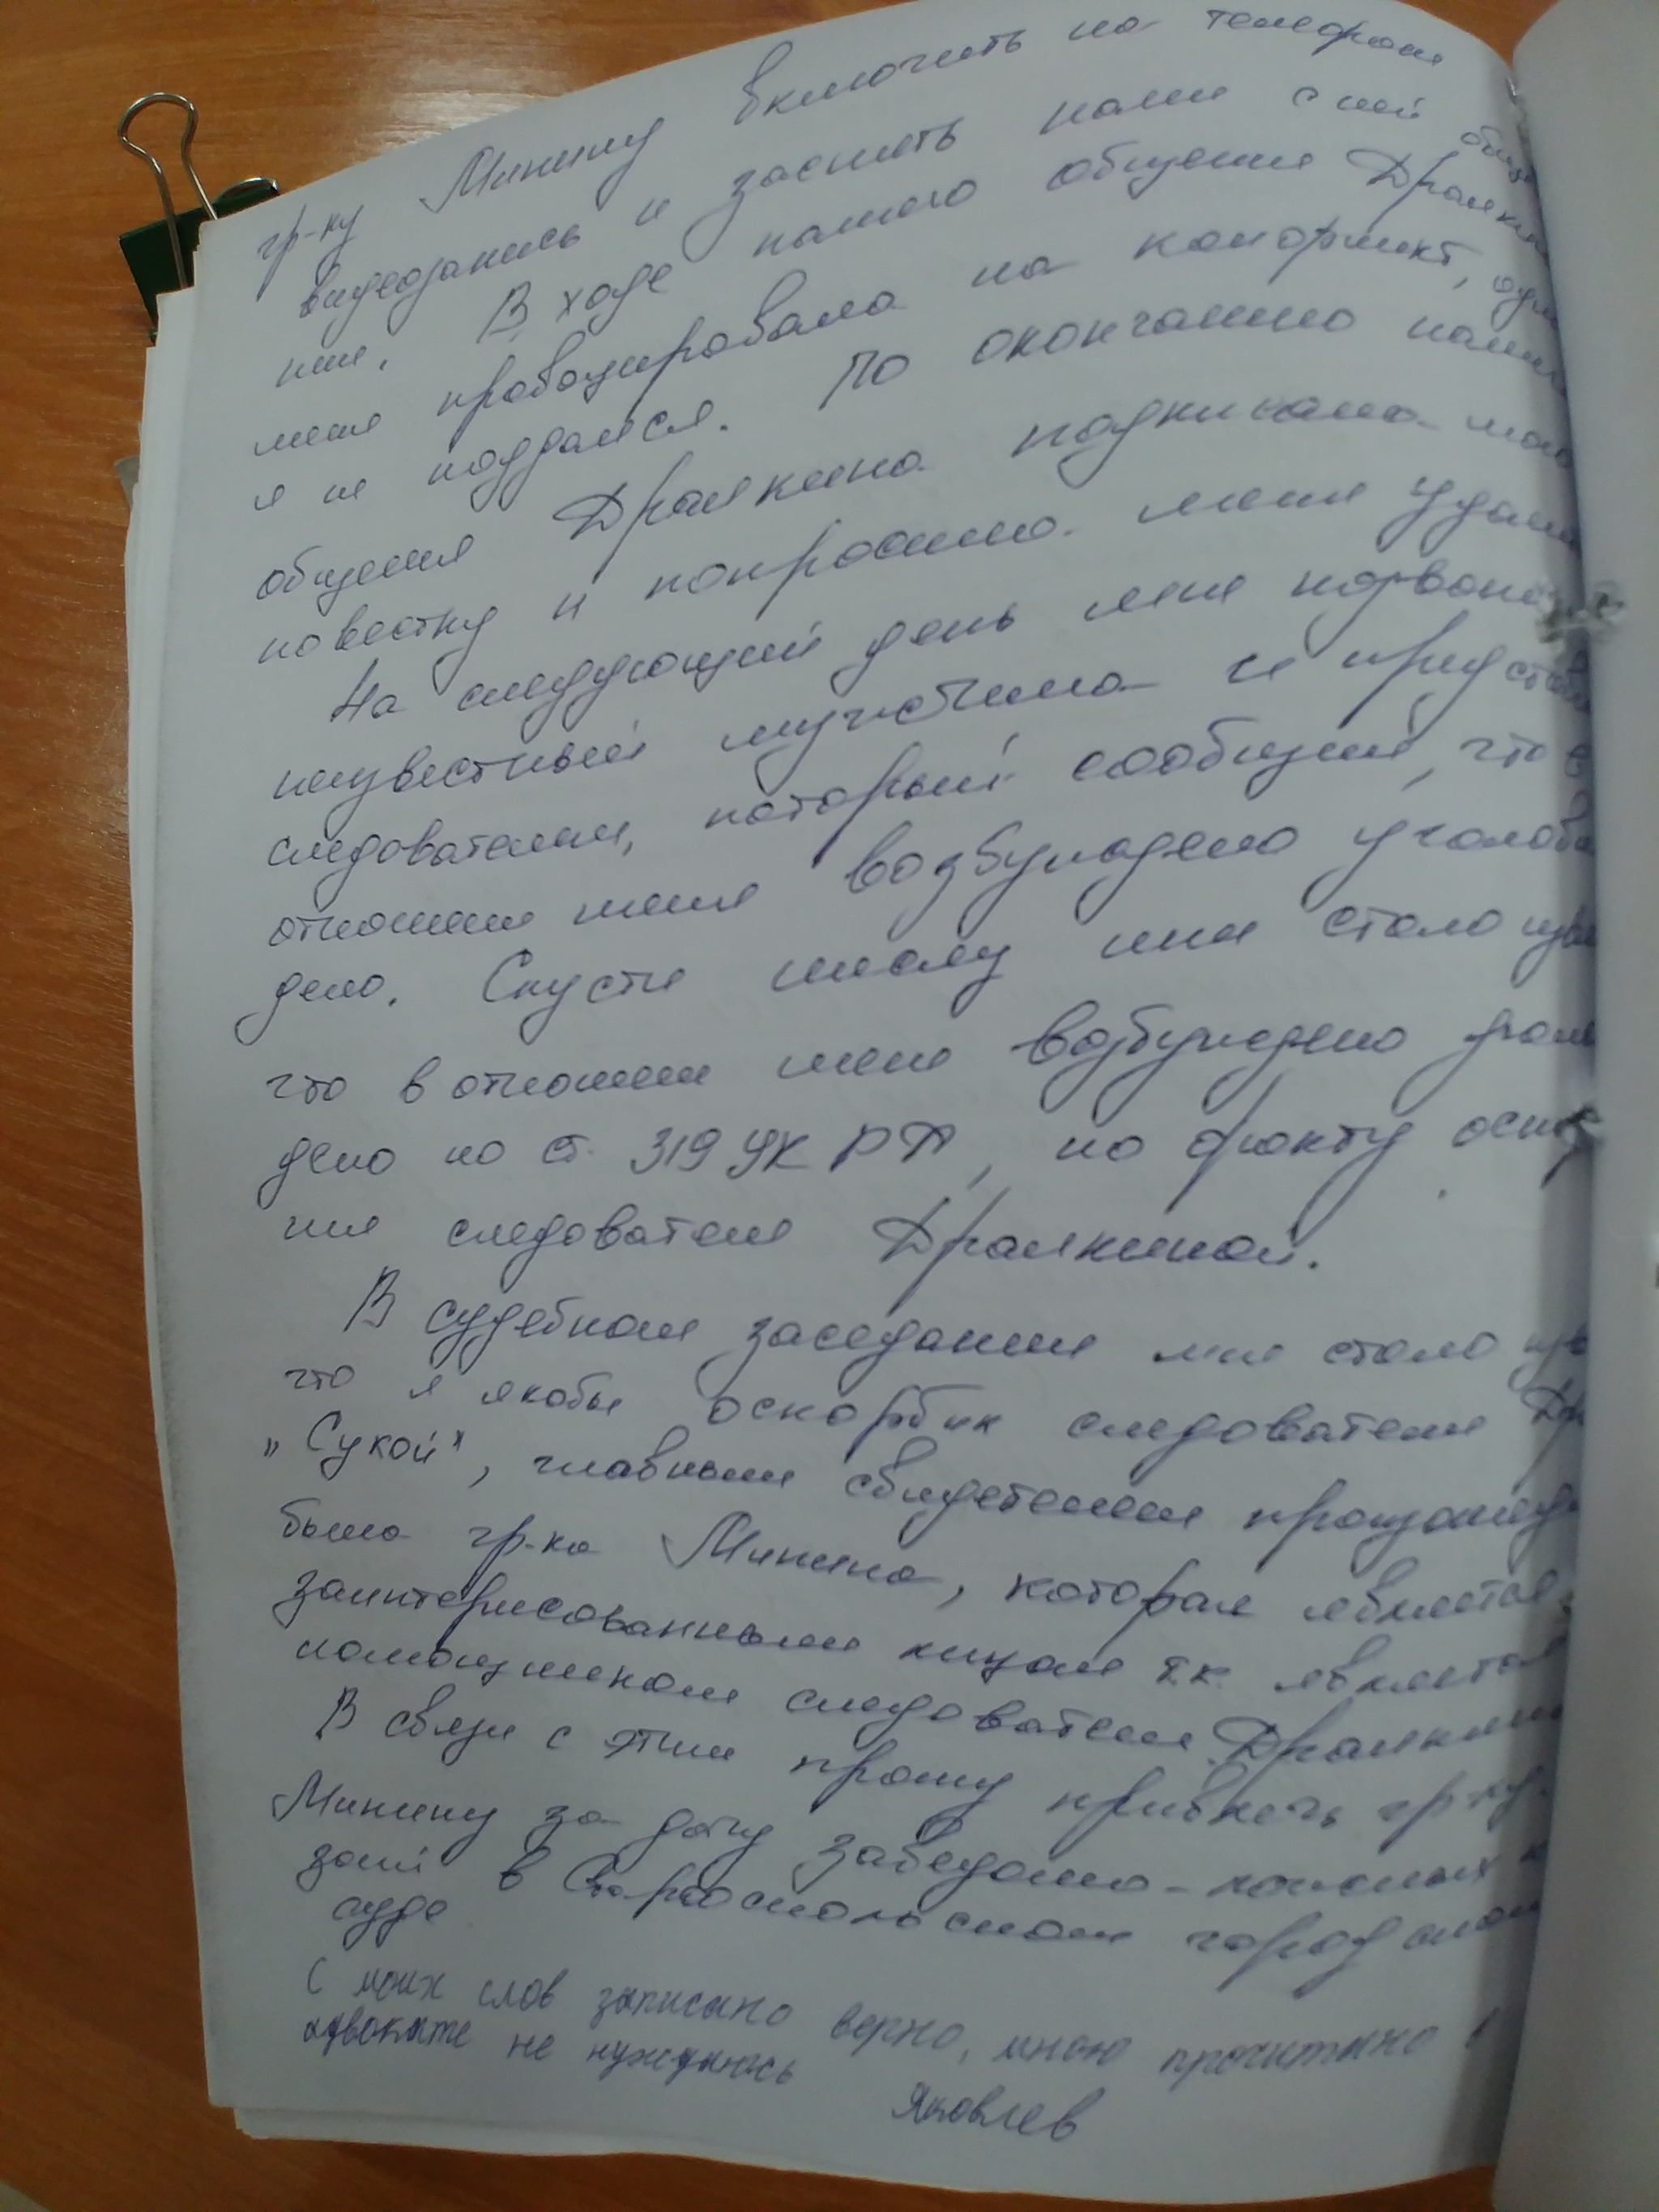 гр-ку Минину включить на телефоне
видеозапись и заснять наше с ней обще
ние. В ходе нашего общения Дралкина
меня провоцировала на конфликт, одна
я не поддался. По окончанию наше
общения Дралкина подписала мою
повестку и попросила меня удали
На следующий день мне позвони
неизвестный мужчина и представ
следователем, который сообщил, что в
отношении меня возбуждено уголовн
дело. Спустя месяц мне стало изв
что в отношении меня возбуждено уголо
дело по ст. 319 УК РФ, по факту оско
ния следователя Дралкиной.
В судебном заседании мне стало изв
что я якобы оскорбил следователя Др
"Сукой", главным свидетелем произошед
была гр-ка Минина, которая является
заинтерисованным лицом т.к. является
помощником следователя Дралкиной
В связи с этим прошу привлечь гр-ку
Минину за дачу заведомо-ложных по
заний в Старооскольском городском
суде
С моих слов записано верно, мною прочитано в
адвокате не нуждаюсь
Яковлев